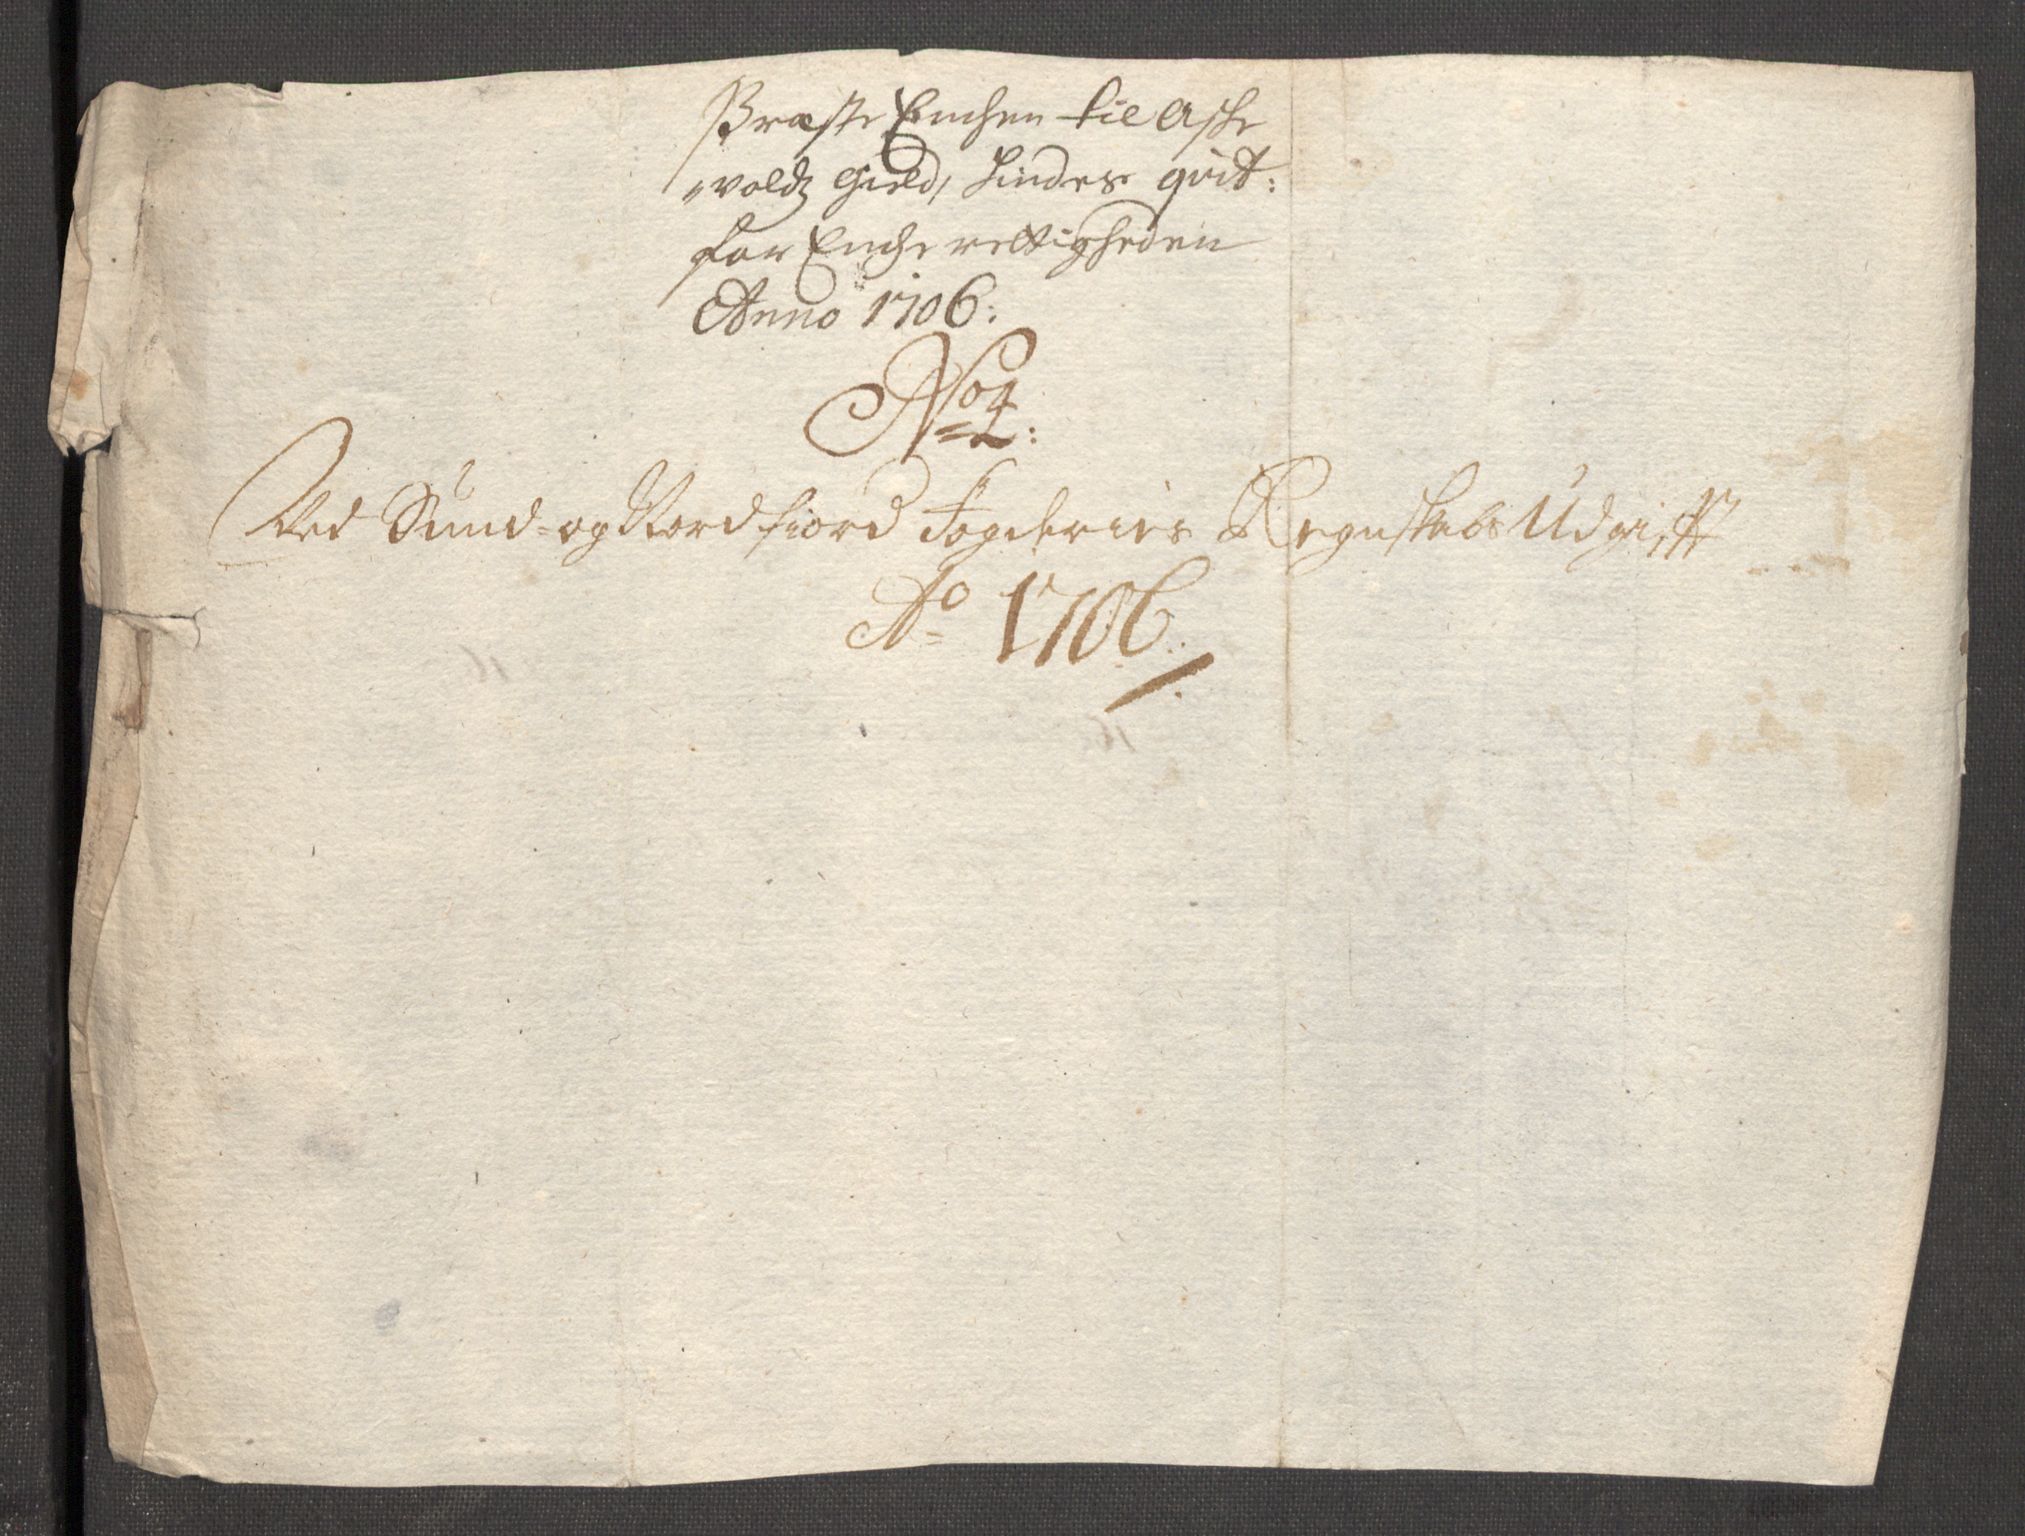 Præste Enchen til Aske
"voldz Gield, hindes qvit:
for Enche rettigheden
Anno 1706:
No 4:
Ved Sund- og Nordfiord Fogderies Regnskabs Udgifft
Ao 1706